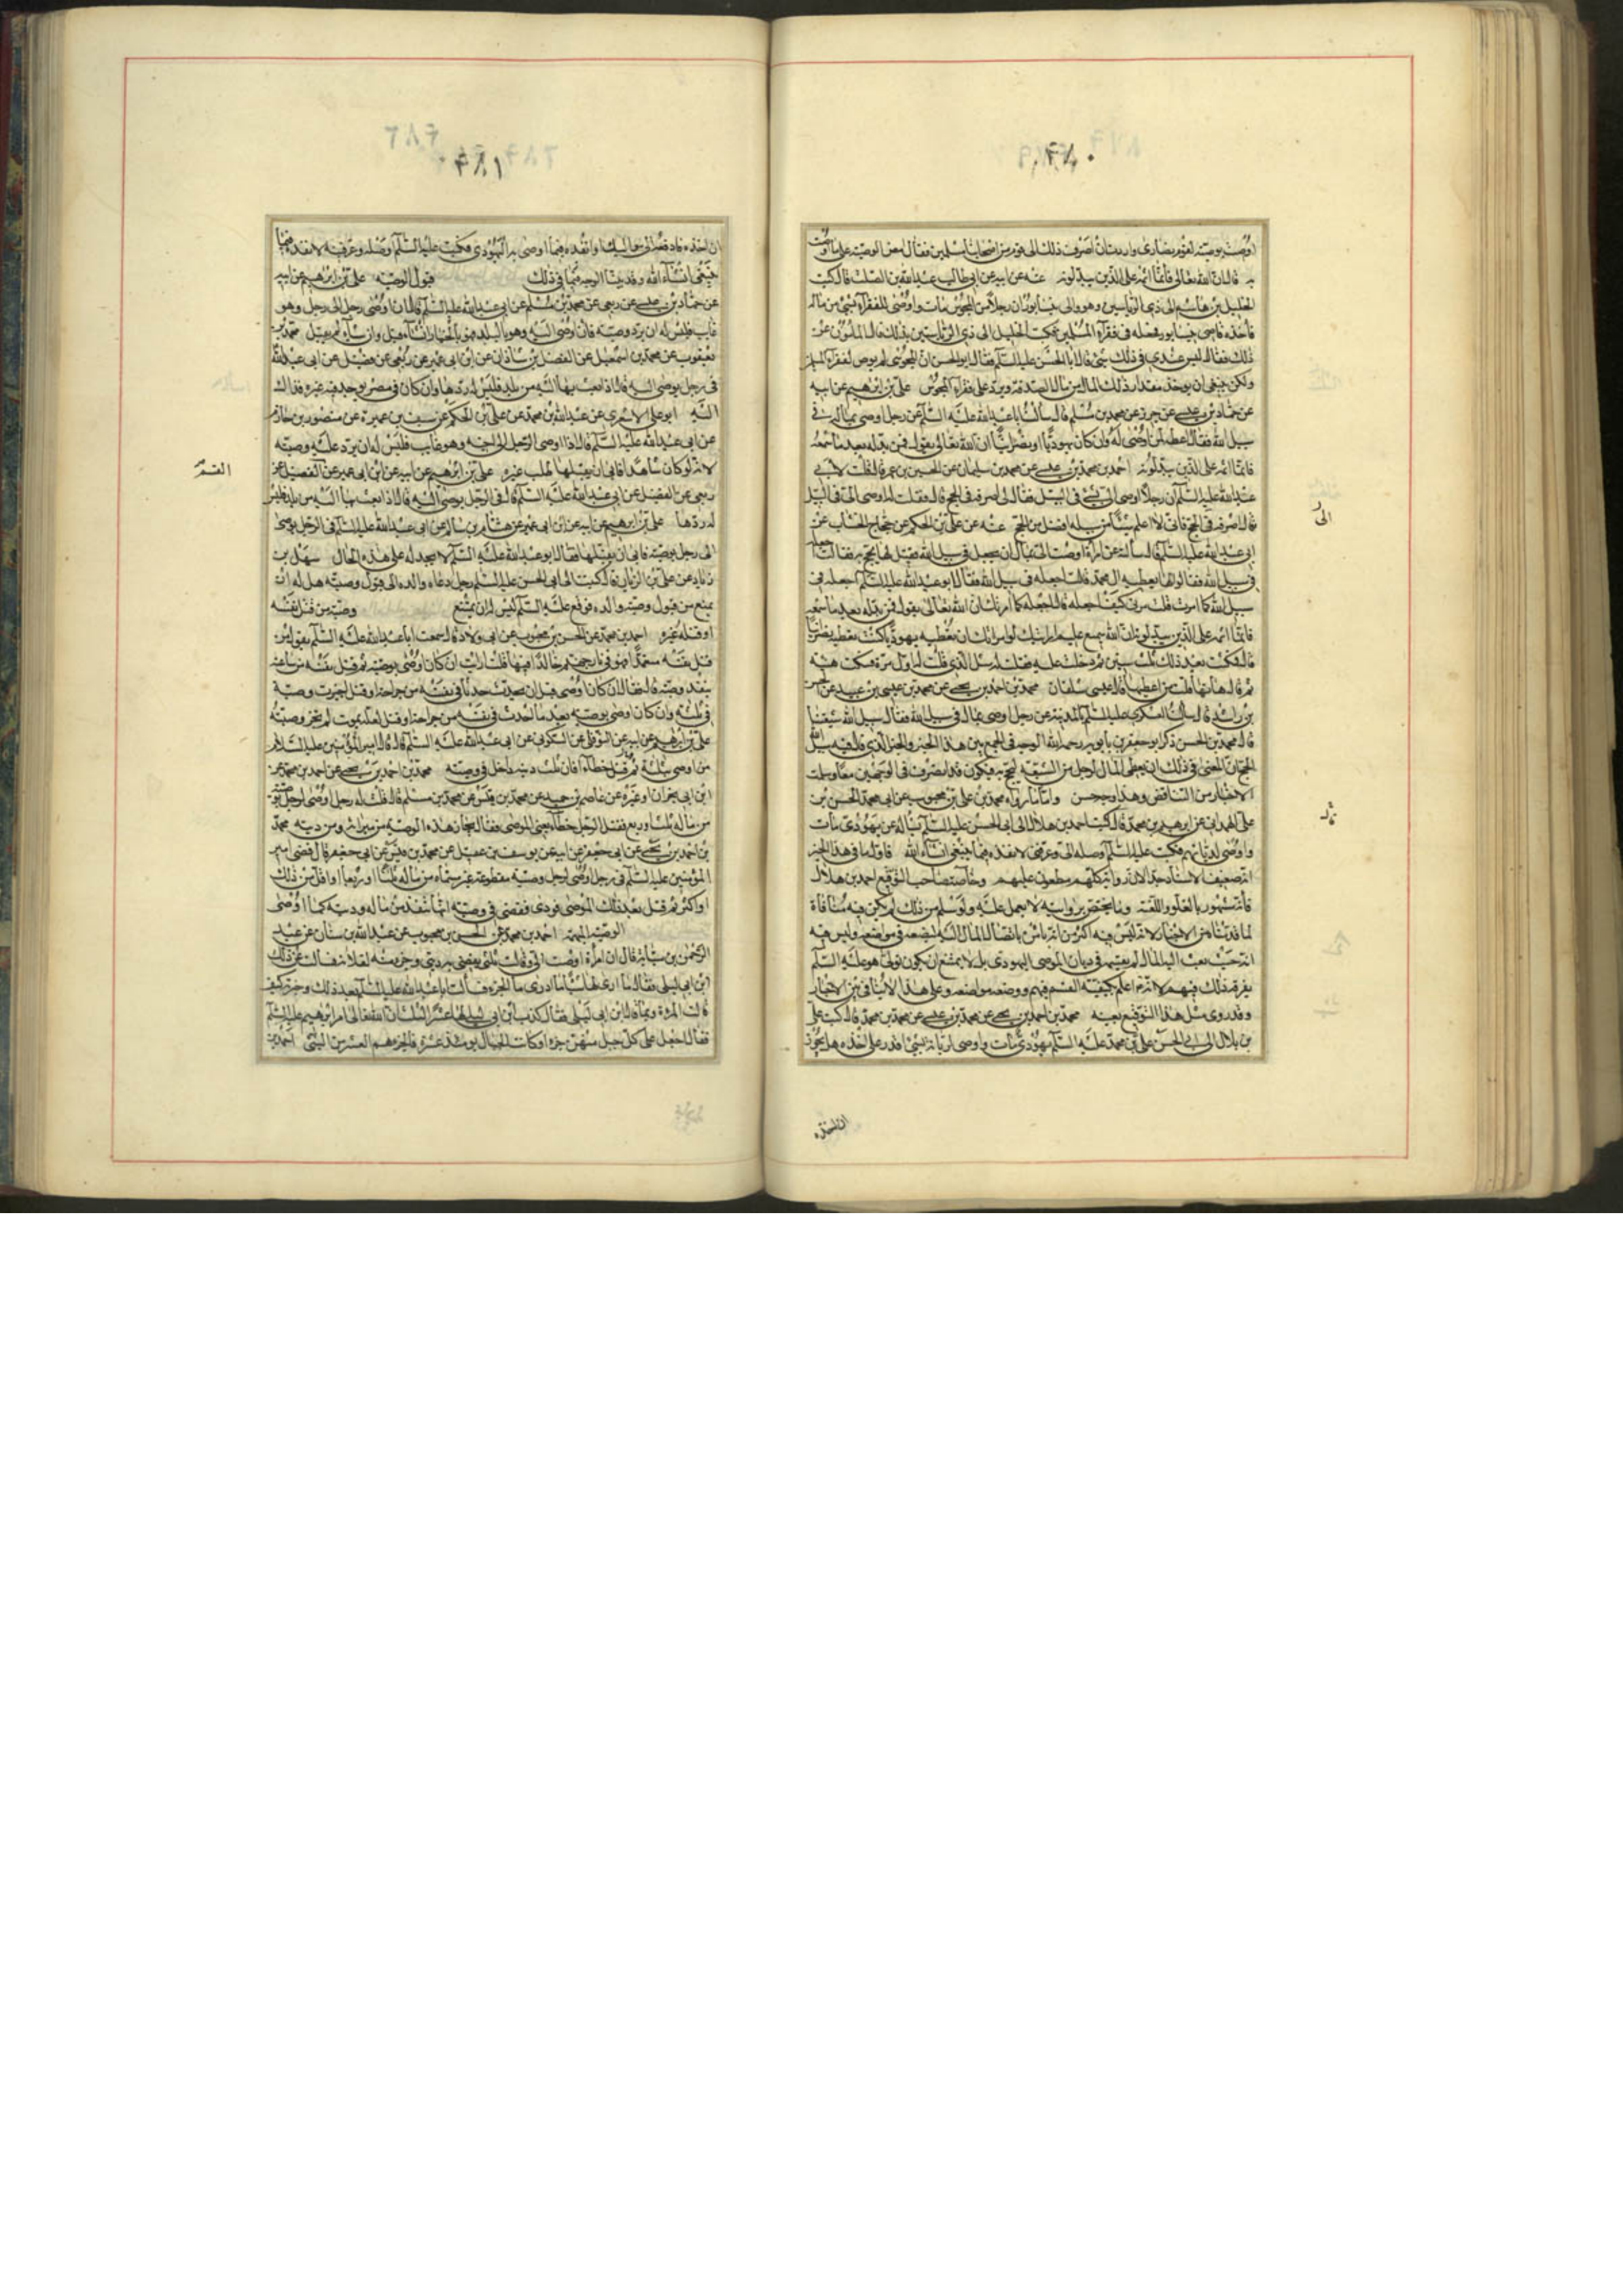 اوصت بوصية لقوم نصارى واردت ان اصرف ذلك الى قوم من اصحابنا مسلمين فقال امض الوصية على ما اوصت
به قال الله تعالى فانما اثمه على الذين يبدلونه عنه عن ابيه عن ابي طالب عبد الله بن الصلت قال كتب
الخليل بن هاشم الى ذي الرياستين وهو والى نيسابور ان رجلا من المجوس مات واوصى للفقراء بشئ من ماله
فاخذه قاضى نيسابور فجعله في فقراء المسلمين فكتب الخليل الى ذي الرياستين بذلك فسال المامون عن
ذلك فقال ليس عندي في ذلك شئ فسال ابا الحسن عليه السلم فقال ابو الحسن ان المجوسى لم يوص لفقراء المسلمين
ولكن ينبغى ان يوخذ مقدار ذلك المال من مال الصدقة ويرد على فقراء المجوس على بن ابرهيم عن ابيه
عن حماد بن عيسى عن حريز عن محمد بن مسلم قال سالت ابا عبد الله عليه السلم عن رجل اوصى بماله في
سبيل الله فقال اعطه لمن اوصى له وان كان يهوديا او نصرانيا ان الله تعالى يقول فمن بدله بعد ما سمعه
فانما اثمه على الذين يبدلونه احمد بن محمد بن عيسى عن محمد بن سليمان عن الحسين بن عمر قال قلت لابي
عبد الله عليه السلم ان رجلا اوصى الى بشئ في السبيل فقال لى اصرفه في الحج قال فقلت له اوصى الى في السبيل
قال اصرفه في الحج فانى لا اعلم شيئا من سبيله افضل من الحج عنه عن على بن الحكم عن حجاج الخشاب عن
ابي عبد الله عليه السلم قال سالته عن امراة اوصت الى بمال ان يجعل في سبيل الله فقيل لها يحج به فقالت اجعله
في سبيل الله فقالوا لها نعطيه ال محمد قالت اجعله في سبيل الله فقال ابو عبد الله عليه السلم اجعله في
سبيل الله كما امرت قلت مرنى كيف اجعله قال اجعله كما امرتك ان الله تعالى يقول فمن بدله بعد ما سمعه
فانما اثمه على الذين يبدلونه ان الله سميع عليم ارايتك لو امرتك ان تعطيه يهوديا كنت تعطيه نصرانيا
قال فمكثت بعد ذلك ثلث سنين ثم دخلت عليه فقلت له مثل الذي قلت له اول مرة فسكت هنيئة
ثم قال هاتها قلت من اعطيها قال عيسى شلقان محمد بن احمد بن يحيى عن محمد بن عيسى بن عبيد عن الحسن
بن راشد قال سالت العسكرى عليه السلم بالمدينة عن رجل اوصى بمال في سبيل الله فقال سبيل الله شيعتنا
قال محمد بن الحسن ذكر ابو جعفر بن بابويه رحمه الله الوجه في الجمع بين هذا الخبر والخبر الذي قال فيه سبيل الله
الحج ان المعنى في ذلك ان يعطى المال لرجل من الشيعة ليحج به فيكون قد انصرف في الوجهين معا وسلمت
الاخبار من التناقض وهذا وجه حسن واما ما رواه محمد بن على بن محبوب عن ابي محمد الحسن بن
على الهمداني عن ابرهيم بن محمد قال كتب احمد بن هلال الى ابي الحسن عليه السلم يساله عن يهودى مات
واوصى لديانهم فكتب عليه السلم اوصله الى وعرفنى لانفذه فيما ينبغى ان شاء الله فاول ما في هذا الخبر
انه ضعيف الاسناد جدا لان رواته كلهم مطعون عليهم وخاصة صاحب التوقيع احمد بن هلال
فانه مشهور بالغلو واللعنة وما يختص بروايته لا نعمل عليه ولو سلم من ذلك لم يكن فيه منافاة
لما قدمناه من الاخبار لانه ليس فيه اكثر من انه باشر بايصال المال اليه ليضعه في مواضعه وليس فيه
انه حيث بعث اليه المال لم يقسم في ديان الموصى اليهودى بل لا يمتنع ان يكون تولى هو عليه السلم
تفرقة ذلك فيهم لانه اعلم بكيفية القسم فيهم ووضعه مواضعه وعلى هذا لا تنافى بين الاخبار
وقد روى مثل هذا التوقيع بعينه محمد بن احمد بن يحيى عن محمد بن عيسى عن محمد بن محمد قال كتب على
بن بلال الى ابي الحسن على بن محمد عليه السلم يهودى مات واوصى لديانه بشئ اقدر على اخذه هل يجوز
ان اخذه
الى
قال
٤٨٠
٤٨١
ان اخذه فادفعه الى مواليك او انفذه فيما اوصى به اليهودى فكتب عليه السلم اوصله وعرفنيه لانفذه فيما
ينبغى ان شاء الله وقد بينا الوجه فيما في ذلك قبول الوصية على بن ابرهيم عن ابيه
عن حماد بن عيسى عن ربعى عن محمد بن مسلم عن ابي عبد الله عليه السلم قال ان اوصى رجل الى رجل وهو
غايب فليس له ان يرد وصيته فان اوصى اليه وهو بالبلد فهو بالخيار ان شاء قبل وان شاء لم يقبل محمد بن
يعقوب عن محمد بن اسمعيل عن الفضل بن شاذان عن ابن ابى عمير عن ربعى عن فضيل عن ابى عبد الله
في رجل يوصى اليه قال اذا بعث بها اليه من بلد فليس له ردها وان كان في مصر يوجد فيه غيره فذاك
اليه ابو على الاشعرى عن عبد الله بن محمد عن على بن الحكم عن سيف بن عميرة عن منصور بن حازم
عن ابي عبد الله عليه السلم قال اذا اوصى الرجل الى اخيه وهو غايب فليس له ان يرد عليه وصيته
لانه لو كان شاهدا فابى ان يقبلها طلب غيره على بن ابرهيم عن ابيه عن ابن ابى عمير عن الفضيل عن
ربعى عن الفضيل عن ابي عبد الله عليه السلم قال في الرجل يوصى اليه قال اذا بعث بها اليه من بلد فليس
له ردها على بن ابرهيم عن ابيه عن ابن ابى عمير عن هشام بن سالم عن ابى عبد الله عليه السلم في الرجل يوصى
الى رجل بوصية فابى ان يقبلها فقال ابو عبد الله عليه السلم لا يخذله على هذه الحال سهل بن
زياد عن على بن الريان قال كتبت الى ابى الحسن عليه السلم رجل دعاه والده الى قبول وصيته هل له ان
يمتنع من قبول وصية والده فوقع عليه السلم ليس له ان يمتنع وصية من قتل نفسه
او قتله غيره احمد بن محمد عن الحسن بن محبوب عن ابى ولاد قال سمعت ابا عبد الله عليه السلم يقول من
قتل نفسه متعمدا فهو في نار جهنم خالدا فيها قلت ارايت ان كان اوصى بوصية ثم قتل نفسه من ساعته
ينفذ وصيته قال فقال ان كان اوصى قبل ان يحدث حدثا في نفسه من جراحة او قتل اجيزت وصيته
في ثلثه وان كان اوصى بوصية بعد ما احدث في نفسه من جراحة او قتل لعله يموت لم تجز وصيته
على بن ابرهيم عن ابيه عن النوفلى عن السكونى عن ابى عبد الله عليه السلم قال قال امير المؤمنين عليه السلام
من اوصى بثلثه ثم قتل خطاء فان ثلث ديته داخل في وصيته محمد بن احمد بن يحيى عن احمد بن محمد عن
ابن ابى نجران او غيره عن عاصم بن حميد عن محمد بن قيس عن محمد بن مسلم قال قلت له رجل اوصى لرجل بوصية
من ماله ثلث او ربع فقتل الرجل خطاء يعنى الموصى فقال يجاز هذه الوصية من ميراثه ومن ديته محمد
بن احمد بن يحيى عن ابى جعفر عن ابيه عن يوسف بن عقيل عن محمد بن قيس عن ابى جعفر قال قضى امير
المؤمنين عليه السلم في رجل اوصى لرجل وصية مقطوعة غير مسماة من ماله ثلثا او ربعا او اقل من ذلك
او اكثر ثم قتل بعد ذلك الموصى فودى فقضى في وصيته انها تنفذ من ماله وديته كما اوصى
الوصية المبهمة احمد بن محمد عن الحسن بن محبوب عن عبد الله بن سنان عن عبد
الرحمن بن سيابة قال ان امراة اوصت الى وقالت ثلثى يقضى به دينى وجزء منه لفلانة فسالت عن ذلك
ابن ابى ليلى فقال ما ارى لها شيئا ما ادرى ما الجزء فسالت ابا عبد الله عليه السلم بعد ذلك وخبرته كيف
قالت المرءة وبما قال ابن ابى ليلى فقال كذب ابن ابى ليلى لها عشر الثلث ان الله تعالى امر ابرهيم عليه السلم
فقال اجعل على كل جبل منهن جزءا وكانت الجبال يومئذ عشرة فالجزء هو العشر من الشئ احمد بن